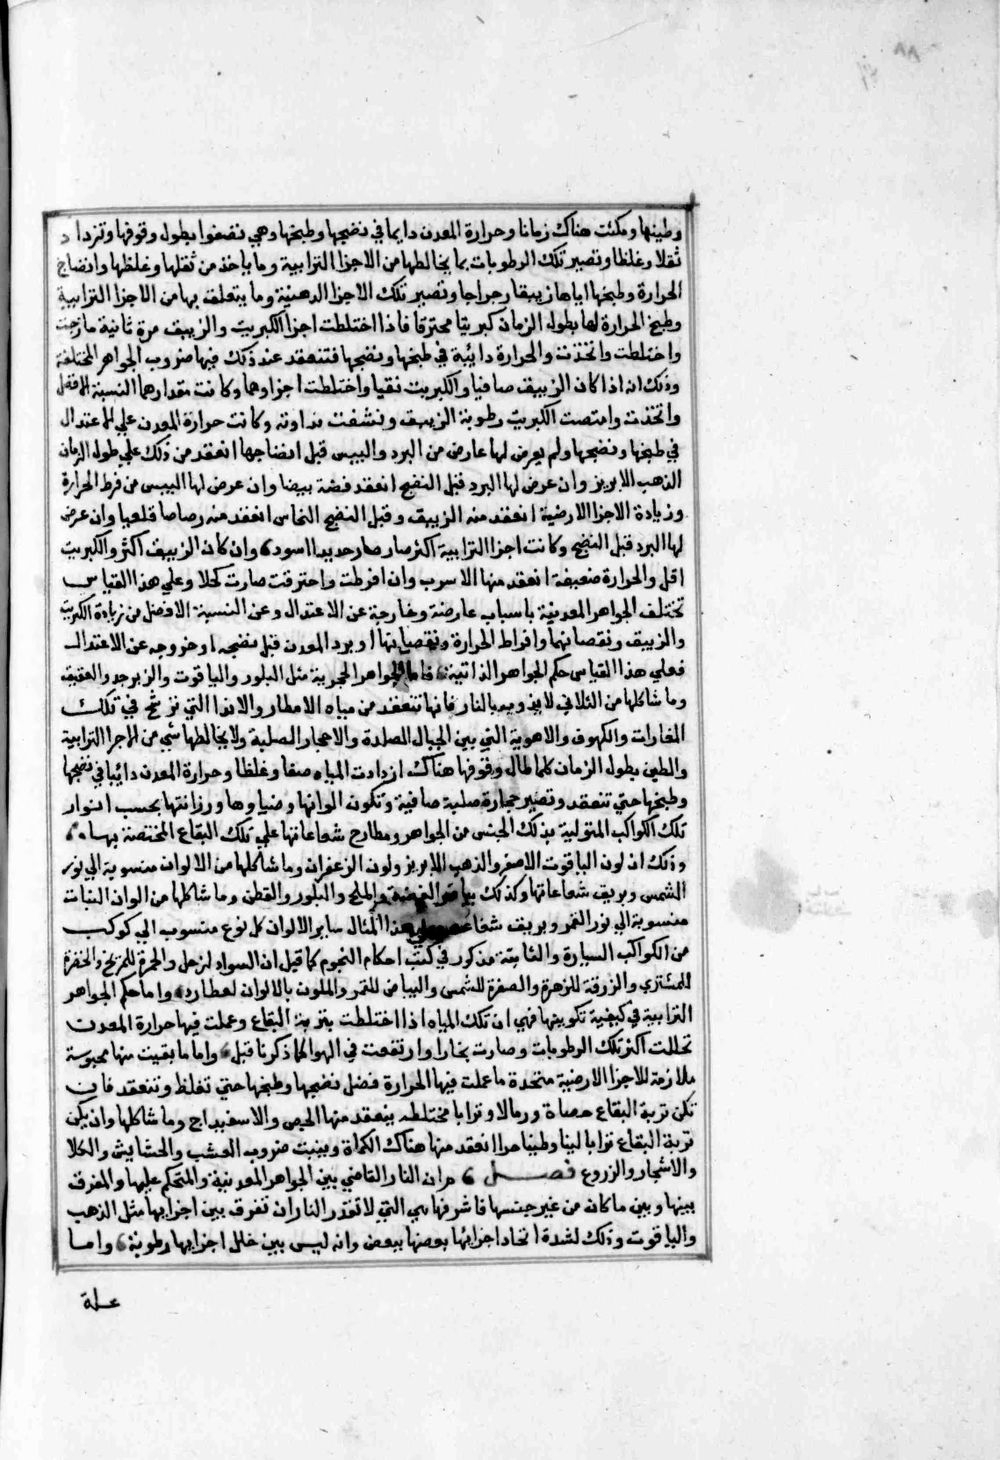 ٨٨
وطينها ومكثت هناك زمانا وحرارة المعدن دايما في نضجها وطبخها وهي تصفوا بطول وقوفها وتزداد
ثقلا وغلظا وتصير تلك الرطوبات بما يخالطها من الاجزا الترابية وما ياخذ من ثقلها وغلظها وانضاج
الحرارة وطبخها اياها زيبقا رجراجا وتصير تلك الاجزا الدهنية وما يتعلق بها من الاجزا الترابية
وطبخ الحرارة لها بطول الزمان كبريتا محترقا فاذا اختلطت اجزا الكبريت والزيبق مرة ثانية مازجت
واختلطت واتخذت والحرارة دايبة في طبخها ونضجها فتنعقد عند ذلك فيها ضروب الجواهر المختلفة
وذلك انه اذا كان الزيبق صافيا والكبريت نقيا واختلطت اجزاوهما وكانت مقدارهما النسبة الافضل
واتخذت وامتصت الكبريت رطوبة الزيبق ونشفت نداوته وكانت حرارة المعدن علي الاعتدال
في طبخها ونضجها ولم يعرض لها عارض من البرد والييس قبل انضاجها انعقد من ذلك علي طول الزمان
الذهب الابريز وان عرض لها البرد قبل النضج انعقد فضة بيضا وان عرض لها اليبس من فرط الحرارة
وزيادة الاجزا الارضية انعقد منه الزيبق وقبل النضج النحاس انعقد منه رصاصا قلعيا وان عرض
لها البرد قبل النضج وكانت اجزا الترابية اكثر صار حديدا اسود وان كان الزيبق اكثر والكبريت
اقل والحرارة ضعيفة انعقد منها الاسرب وان افرطت واحترقت صارت كحلا وعلي هذا القياس
تختلف الجواهر المعدنية باسباب عارضة وخارجة عن الاعتدال وعن النسبة الافضل من زيادة الكبريت
والزيبق ونقصانهما وافراط الحرارة ونقصانها او برد المعدن قبل نضجه او خروجه عن الاعتدال
فعلي هذا القياس حكم الجواهر الذاتية فاما الجواهر الحجرية مثل البلور والياقوت والزبرجد والعقيق
وما شاكلها من الثلاثي لا يذوب بالنار فانها تنعقد من مياه الامطار والاندا التي ترشح في تلك
المغارات والكهوف والاهوية التي بين الجبال الصلدة والاحجار الصلبة ولا يخالطها شي من الاجزا الترابية
والطين بطول الزمان كلما طال وقوفها هناك ازدادت المياه صفا وغلظا وحرارة المعدن دايبا في نضجها
وطبخها حتي تنعقد وتصير حجارة صلبة صافية وتكون الوانها وضياوها ورزانتها بحسب انوار
تلك الكواكب المتولية بذلك الجنس من الجواهر ومطارح شعاعاتها علي تلك البقاع المختصة بها
وذلك ان لون الياقوت الاصفر والذهب الابريز ولون الزعفران وما شاكلها من الالوان منسوبة الي نور
الشمس وبريق شعاعاتها وكذلك بياض الفضة والملح والبلور والقطن وما شاكلها من الوان النبات
منسوبة الي نور القمر وبريق هذا المثال ساير الالوان كل نوع منسوب الي كوكب
من الكواكب السيارة والثابتة مذكور في كتب احكام النجوم كما قيل ان السواد لزحل والحمرة للمريخ والخضرة
للمشتري والزرقة للزهرة والصفرة للشمس والبياض للقمر والملون بالالوان لعطارد واما حكم الجواهر
الترابية في كيفية تكوينها فهي ان تلك المياه اذا اختلطت بتربة البقاع وعملت فيها حرارة المعدن
تحللت اكثر تلك الرطوبات وصارت بخارا وارتفعت في الهوا كما ذكرنا قبل واما ما بقيت منها محبوسة
ملازمة للاجزا الارضية متحدة ما عملت فيها الحرارة فضل نضجها وطبخها حتي تغلظ وتنعقد فان
تكن تربة البقاع حصاة ورمالا وترابا مختلطه ينعقد منها الجص والاسفيداج وما شاكلها وان يكن
تربة البقاع ترابا لينا وطينا حرا انعقد منها هناك الكماة وينبت ضروب العشب والحشايش والكلا
والاشجار والزروع فصل مر ان النار القاضي بين الجواهر المعدنية والمتحكم عليها والمفرق
بينها وبين ما كان من غير جنسها فاشرفها هي التي لا تقدر النار ان تفرق بين اجزايها مثل الذهب
والياقوت وذلك لشدة اتحاد اجزائها بعضها ببعض وانه ليس بين خلل اجزايها رطوبة واما
علة